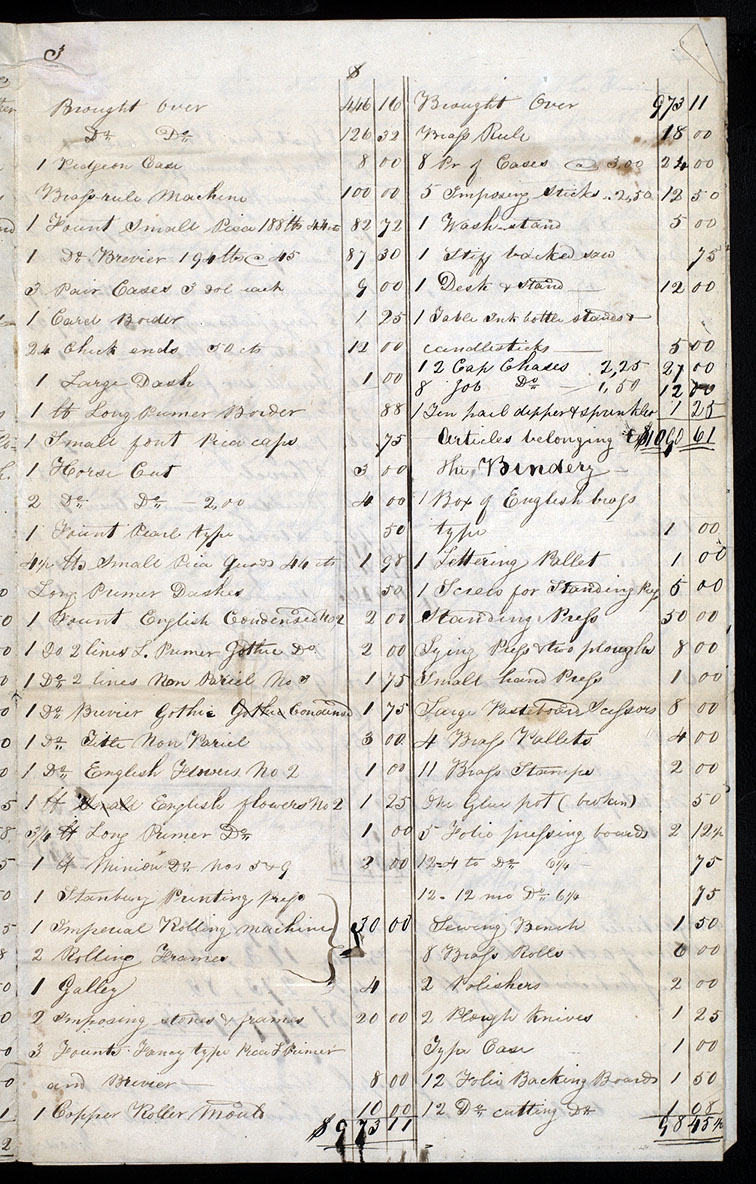 3
$
Brought over 446 16
Do Do 126 32
1 Pidgeon Case 8 00
Brass rule Machine 100 00
1 Fount Small Pica 188 lb 44 cts 82 72
1 Do Brevier 194 lb @ 45 87 30
3 Pair Cases 3 dol each 9 00
1 Card Border 1 25
24 Chick ends 50 cts 12 00
1 Large Dash 1 00
1 lb Long Primer Border 88
1 Small font Pica caps 75
1 Horse Cut 3 00
2 Do Do – 2,00 4 00
1 Fount Pearl type 50
4½ lbs Small Pica Quads 44 cts 1 98
Long Primer Dashes 50
1 Fount English Condensed No 2 2 00
1 Do 2 lines L. Primer Gothic Do 2 00
1 Do 2 lines Non Pariel No 3 1 75
1 Do Brevier Gothic Gothic Condensed 1 75
1 Do Title Non Pariel 3 00
1 Do English Flowers No 2 1 00
1 lb Small English flowers No 2 1 25
3/4 lb Long Primer Do 1 00
1 lb Minion Do Nos 5 & 9 2 00
1 Stanbury Printing Press
1 Imperial Rolling machine 50 00
2 Rolling Frames
1 Galley 4
2 Imposing stones & frames 20 00
3 Founts Fancy type Pica L Primer
and Brevier — 8 00
1 Copper Roller Mould 10 00
$973 11
Brought Over 973 11
Brass Rule 18 00
8 Pr of Cases @ 3,00 24 00
5 Imposing sticks .. 2,50 12 50
1 Wash-stand 5 00
1 Stiff backed saw 75
1 Desk & Stand — 12 00
1 Table Ink bottle stands &
candlesticks — 5 00
12 Cap Chases 2,25 27 00
8 Job Do — 1,50 12 00
1 Tin pail dipper & sprinkler 1 25
$1090 61
Articles belonging to
the Bindery —
1 Box of English brass
type 1 00
1 Lettering Pallet 1 00
1 Screw for Standing Press 5 00
Standing Press 50 00
Lying Press & two ploughs 8 00
Small hand Press 1 00
Large Pasteboard Scissors 8 00
4 Brass Pallets 4 00
11 Brass Stamps 2 00
One Glue pot (broken) 50
5 Folio pressing boards 2 12½
12-4 to Do 6¼ — 75
12-12 mo Do 6¼ 75
Sewing Bench 1 50
8 Brass Rolls 6 00
2 Polishers 2 00
2 Plough Knives 1 25
Type Case 1 00
12 Folio Backing Boards 1 50
12 Do cutting Do 1 08
98 45½